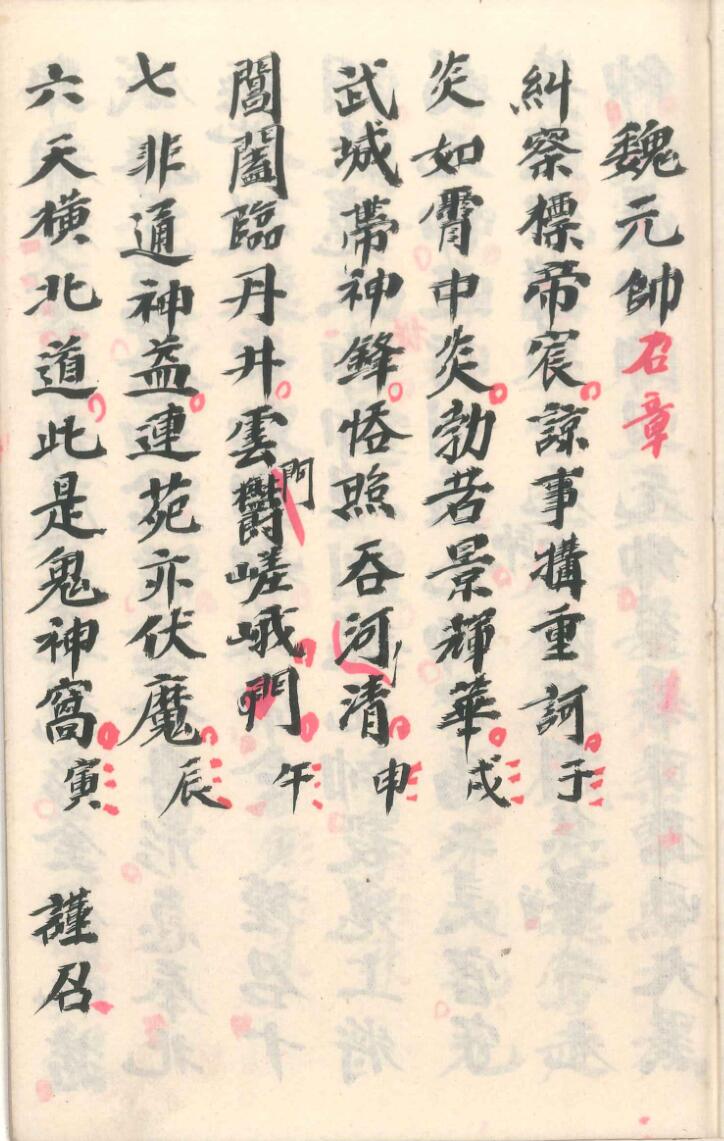 魏元帥召章
糾察標帝宸諒事搆重訶子
炎如霄中炎勃若景輝華戌
武城帶神鋒恡照吞河清申
閶闔臨丹井雲欝嵯峨門午
間
七非通神益連苑亦伏魔辰
六天橫北道此是鬼神窩寅
謹召